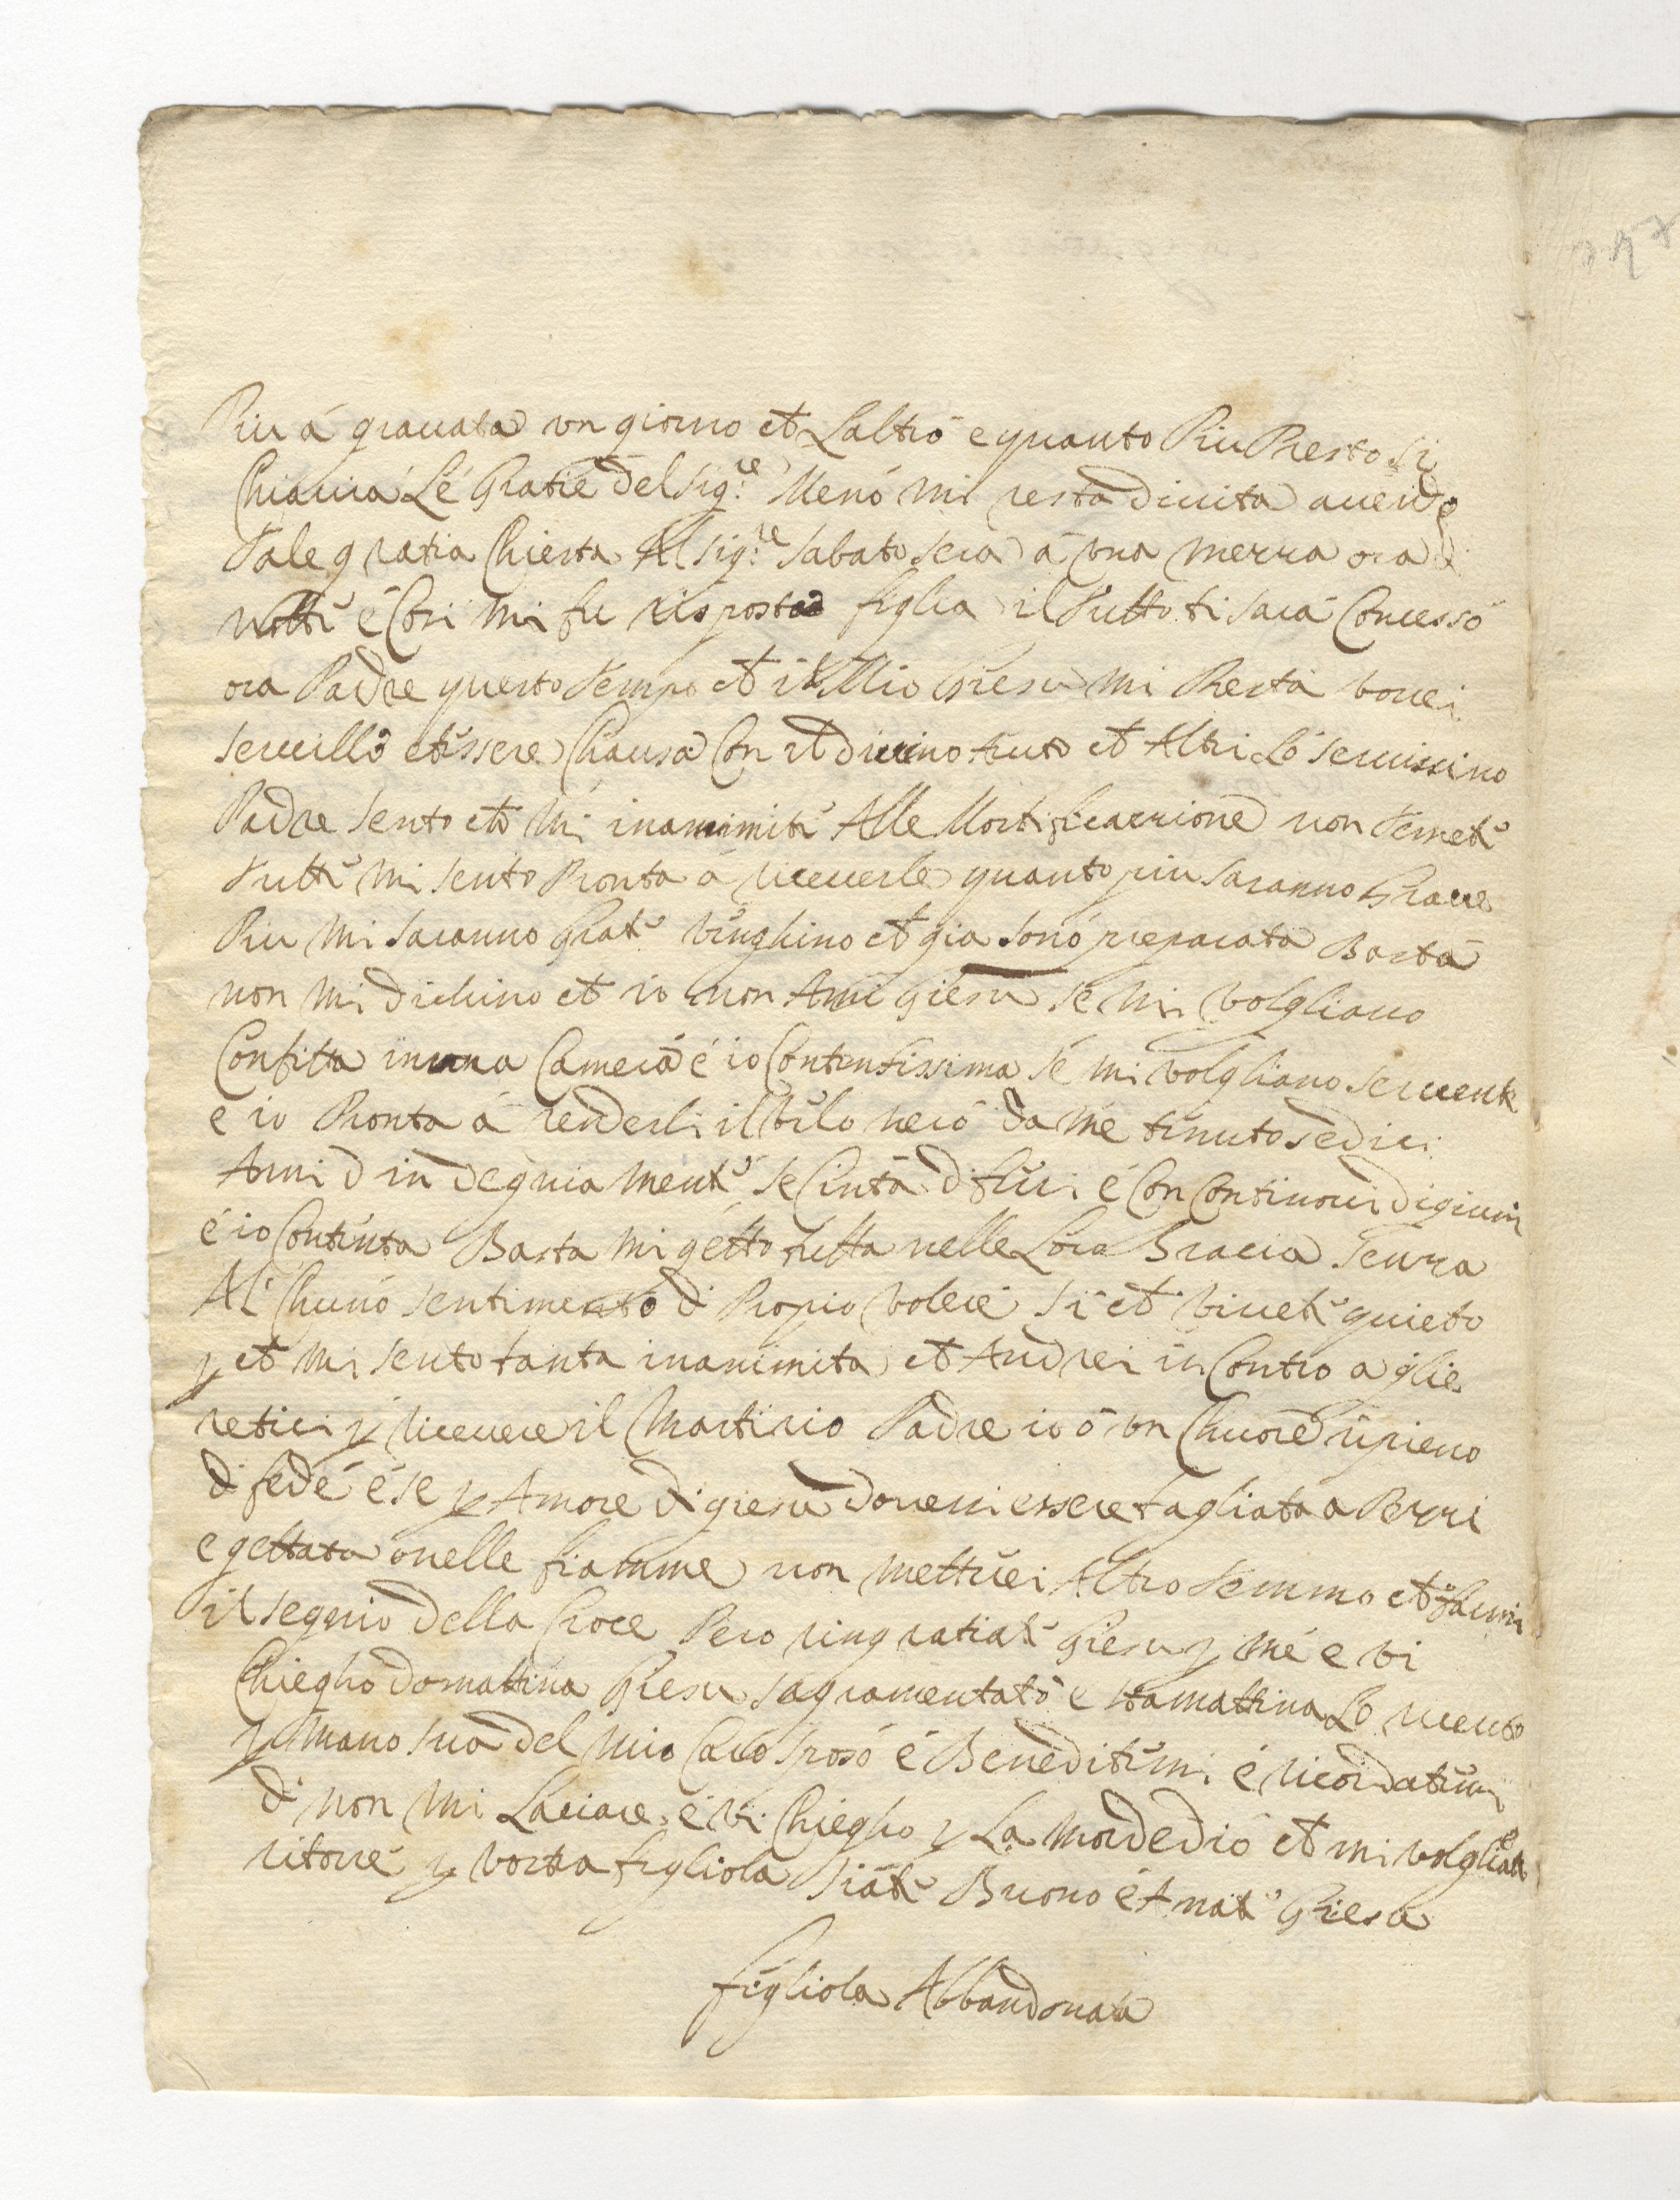 Piu á gravata un giorno et Laltro e quanto Piu Presto si
Chiavra Lé Gratie del Sig.re Menó mi resta di vita avendo
Tale gratia Chiesta Al Sig.re Sabato sera á una merra ora di
notte é Cosi mi fu risposta figlia il tutto ti sará Concesso
ora Padre questo tempo et il Mio Giesu mi Presta vorrei
servillo et essere Chausa Con il divino aiuto et Altri Ló servissino
Padre sento et mi inanimite Alle Mortificarrione non temete
Tutte mi sento Pronta á riceverle quanto piu saranno Grave
Piu mi saranno Grate venghino et gia sonó preparata Basta
non mi dichino et io non Ami giesu se mi volgliano
Confitta in una Camera é io Contentissima sé mi volgliano servente
e io Pronta á renderli il velo nero da me tenuto sedici
Anni d indegniamente se Cinta di ferri é Con Continovi digiuni
é io Contenta Basta mi getto tutta nelle Lora Bracia senra
Al Chunó sentimento di Propio volere si et vivete quieto
p et mi sento tanta inanimita et Andrei in Contro a glie
retici p ricevere il Martirio Padre io ó un Chuore ripieno
di fedé é se p Amore di giesu dovessi essere tagliata a Perri
e gettata nelle fiamme non metterei Altro temmo et farmi
il segnio della Croce Pero ringratiate Giesu p mé e vi
Chiegho domattina Giesu sagramentató e stamattina Lo ricevuto
p mano sua del mio Caro sposó é Beneditemi é ricordatevi
di non mi Laciare é vi Chiegho p La mordedio et mi volgliate
ritorre p vostra figliola Siate Buono é Amate Giesu
figliola Abbandonata